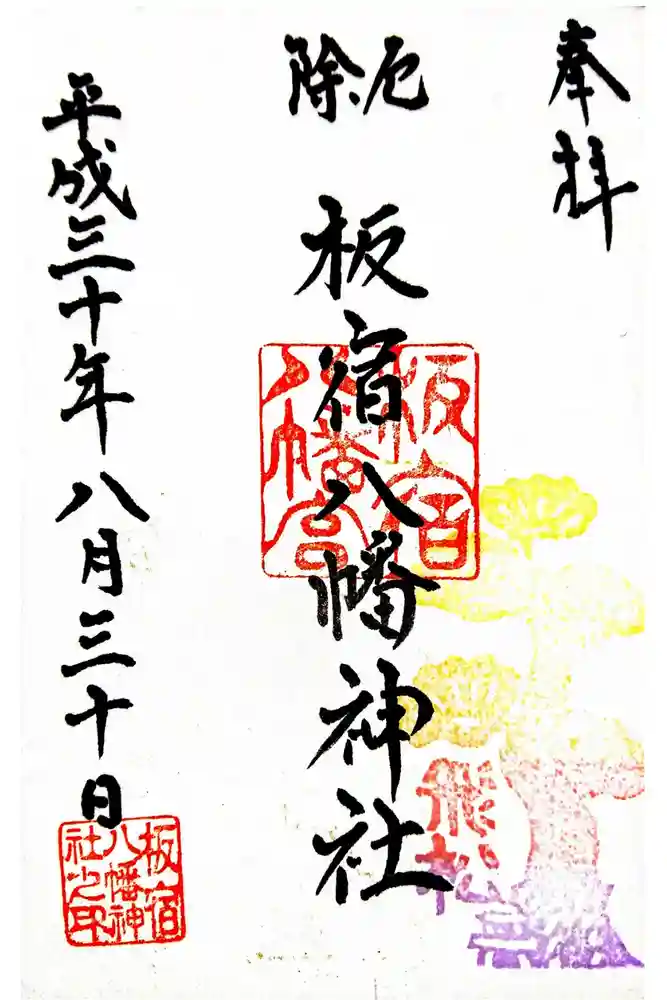 奉拝
厄除
板宿八幡神社
平成三十年八月三十日
板宿
八幡宮
飛松
板宿
八幡神
社之印